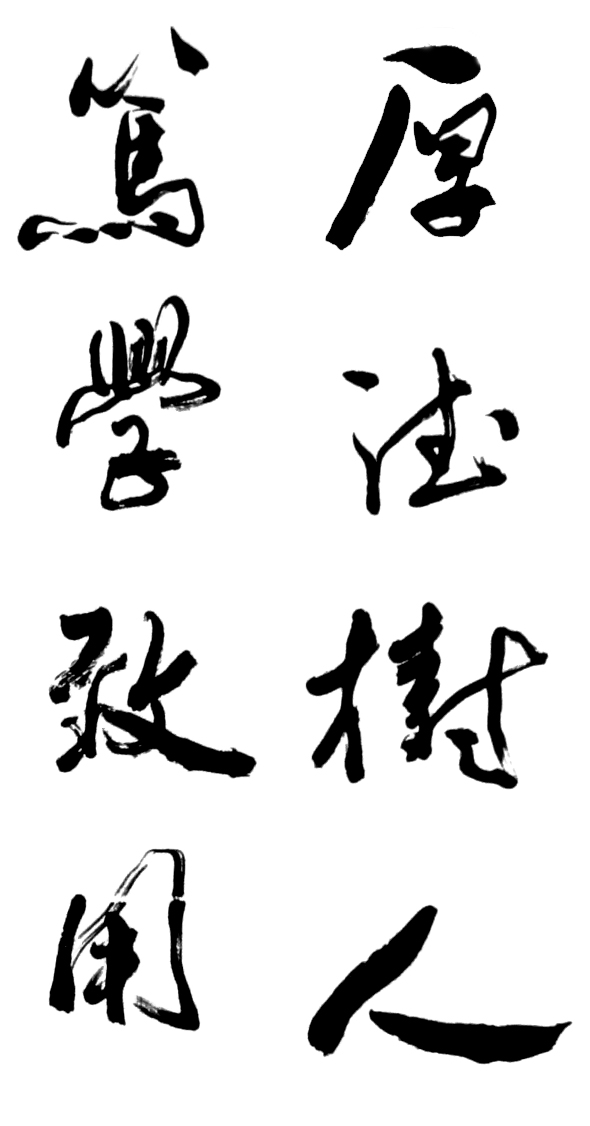 厚德樹人
篤學致用